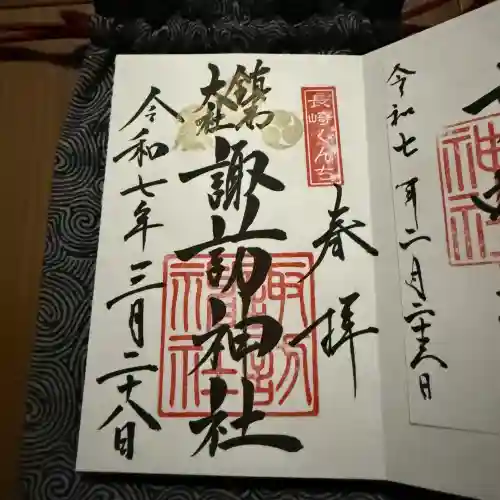 奉拝
長崎くんち
鎮西
大社
諏訪神社
諏訪神社
令和七年三月二十八日
神社
令和七年二月二十六日